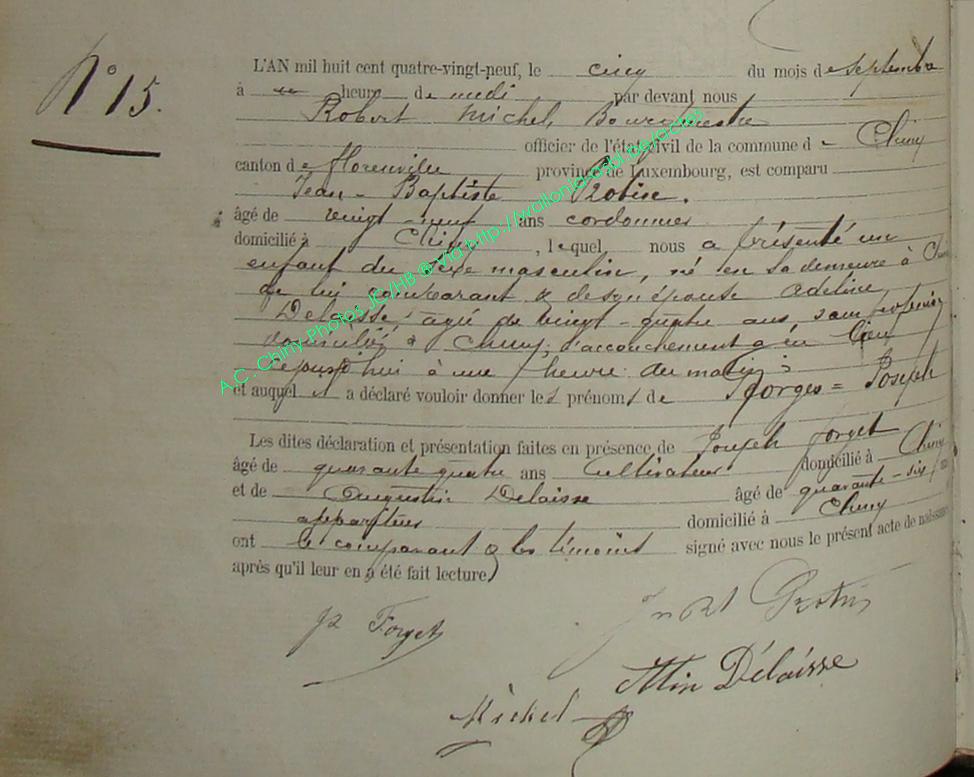 N° 15.
L'AN mil huit cent quatre-vingt-neuf, le cinq du mois de septembre
à heure de midi par devant nous
Robert Michel, Bourgmestre
officier de l'état civil de la commune de Chiny
canton de florenville province de Luxembourg, est comparu
Jean-Baptiste
âgé de vingt-neuf ans cordonnier
domicilié à Chiny, lequel nous a présenté un
enfant du sexe masculin, né en sa demeure à
de lui comparant & de son épouse Adeline
Delaisse agée de vingt-quatre ans, sans
domiciliés à Chiny; l'accouchement a eu lieu
cejourd'hui à une heure du matin;
et auquel il a déclaré vouloir donner les prénoms de Georges = Joseph
Les dites déclaration et présentation faites en présence de Joseph forget
âgé de quarante quatre ans Cultivateur domicilié à Chiny
et de Augustin Delaisse âgé de quarante-six
appariteur domicilié à Chiny
ont le comparant & les témoins signé avec nous le présent acte de naissance
après qu'il leur en a été fait lecture
Forget
Delaisse
Michel
A.C. Chiny-Photos JC/HB ® via http://wallonia-asbl.be/actes